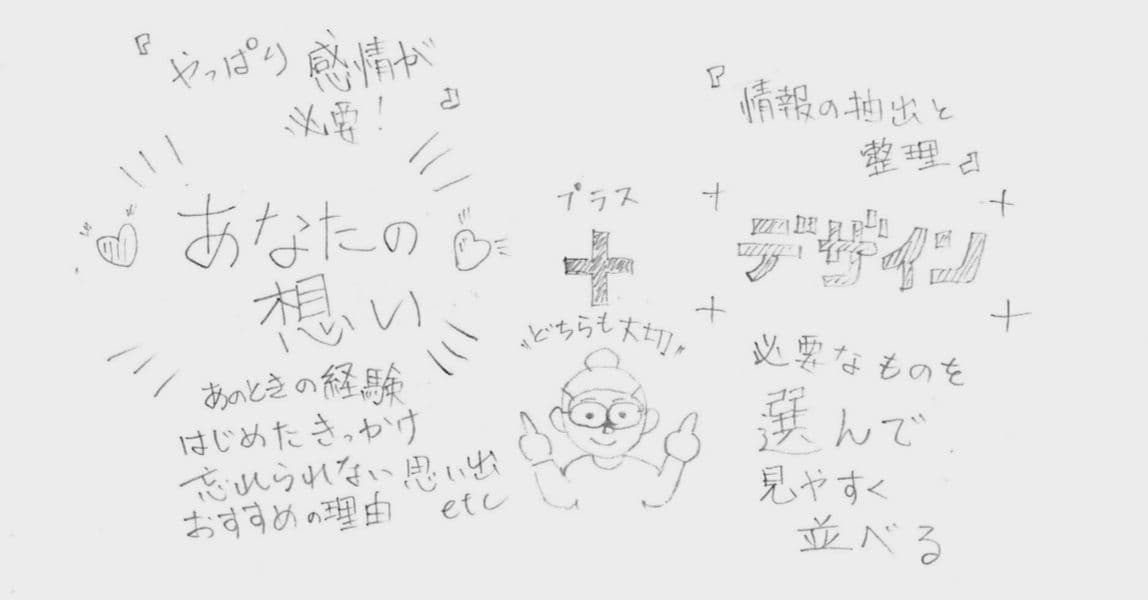 『やっぱり感情が
必要!』
あなたの
想い
あのときの経験
はじめたきっかけ
忘れられない思い出
おすすめの理由 etc
プラス
+
"どちらも大切"
『情報の抽出と
整理』
デザイン
必要なものを
選んで
見やすく
並べる